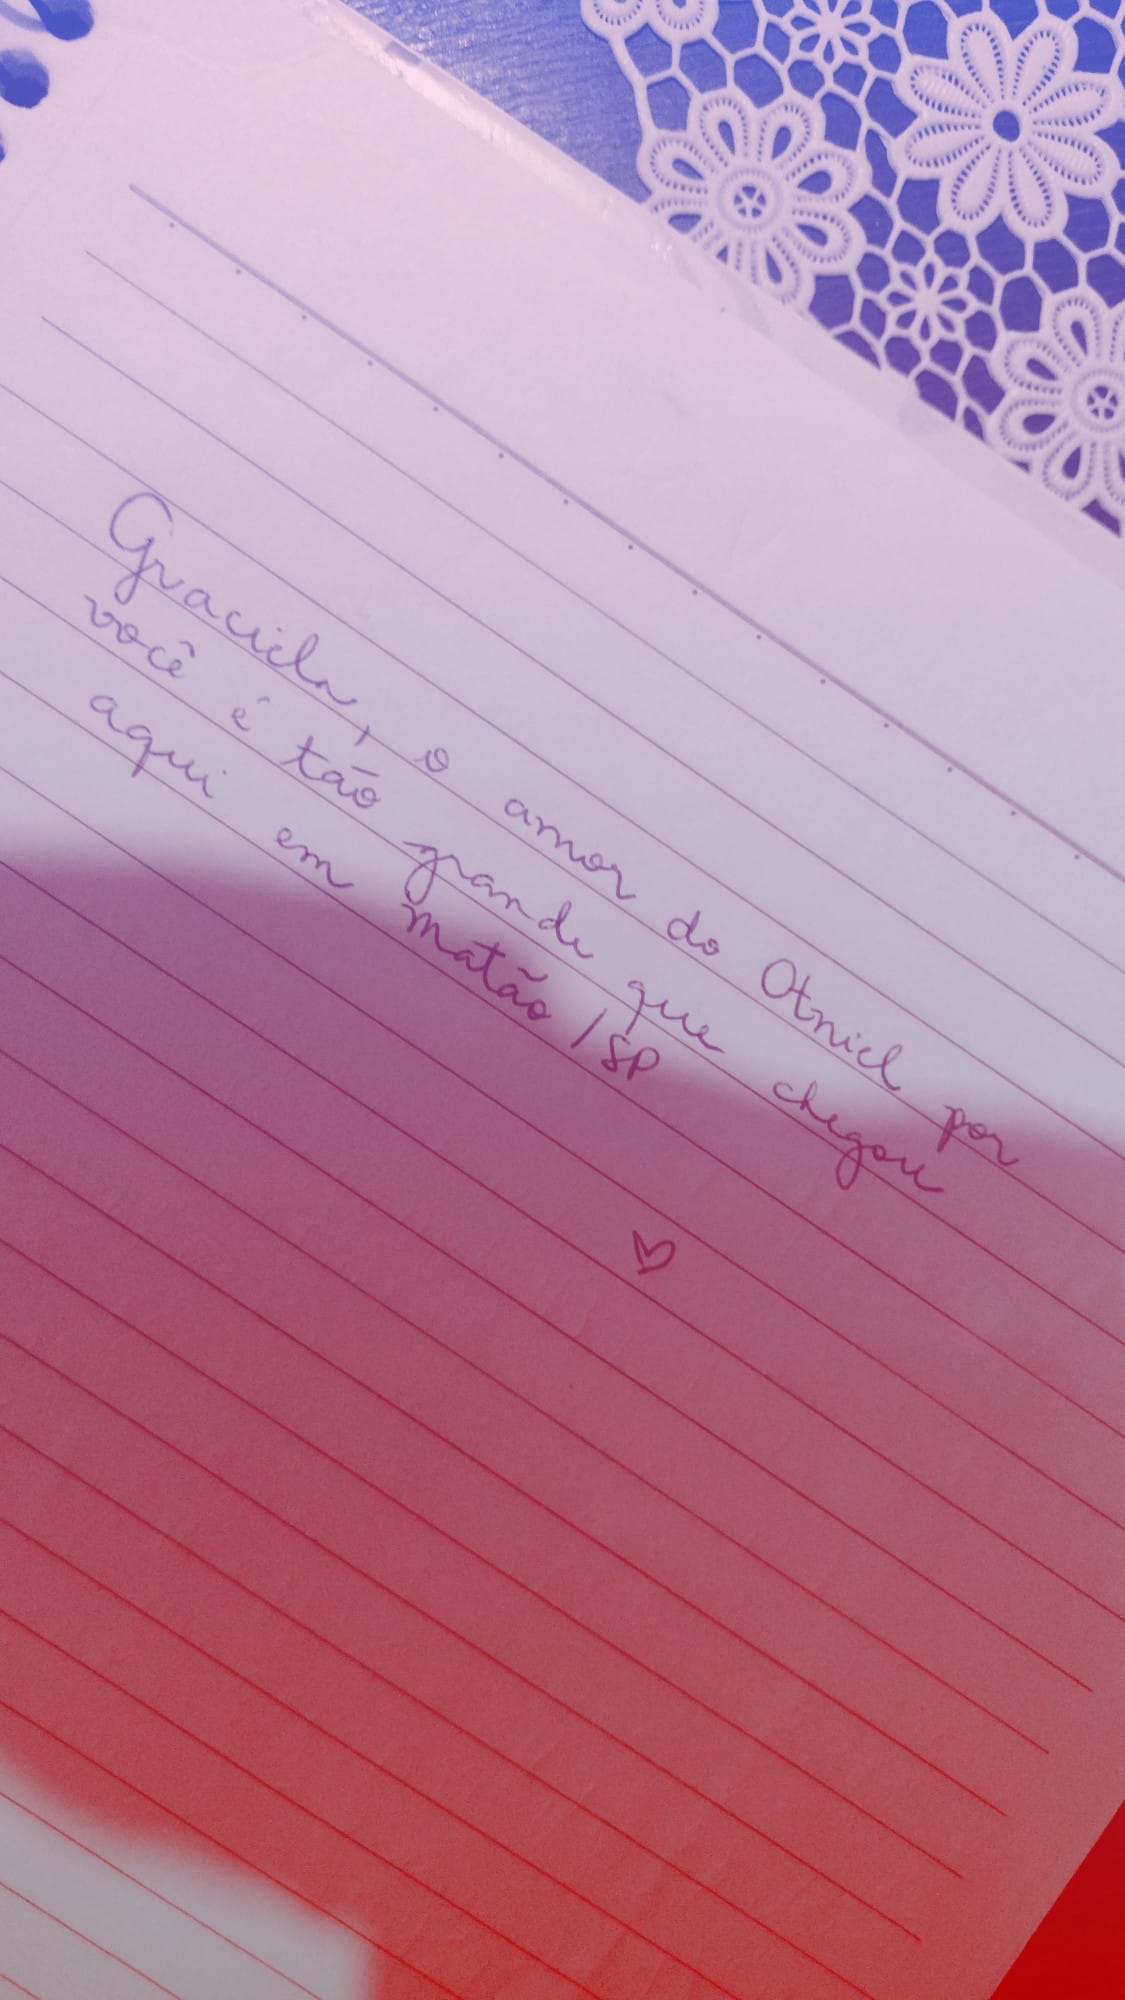 Graciela, o amor do Otniel por
você é tão grande que chegou
aqui em Matão/SP